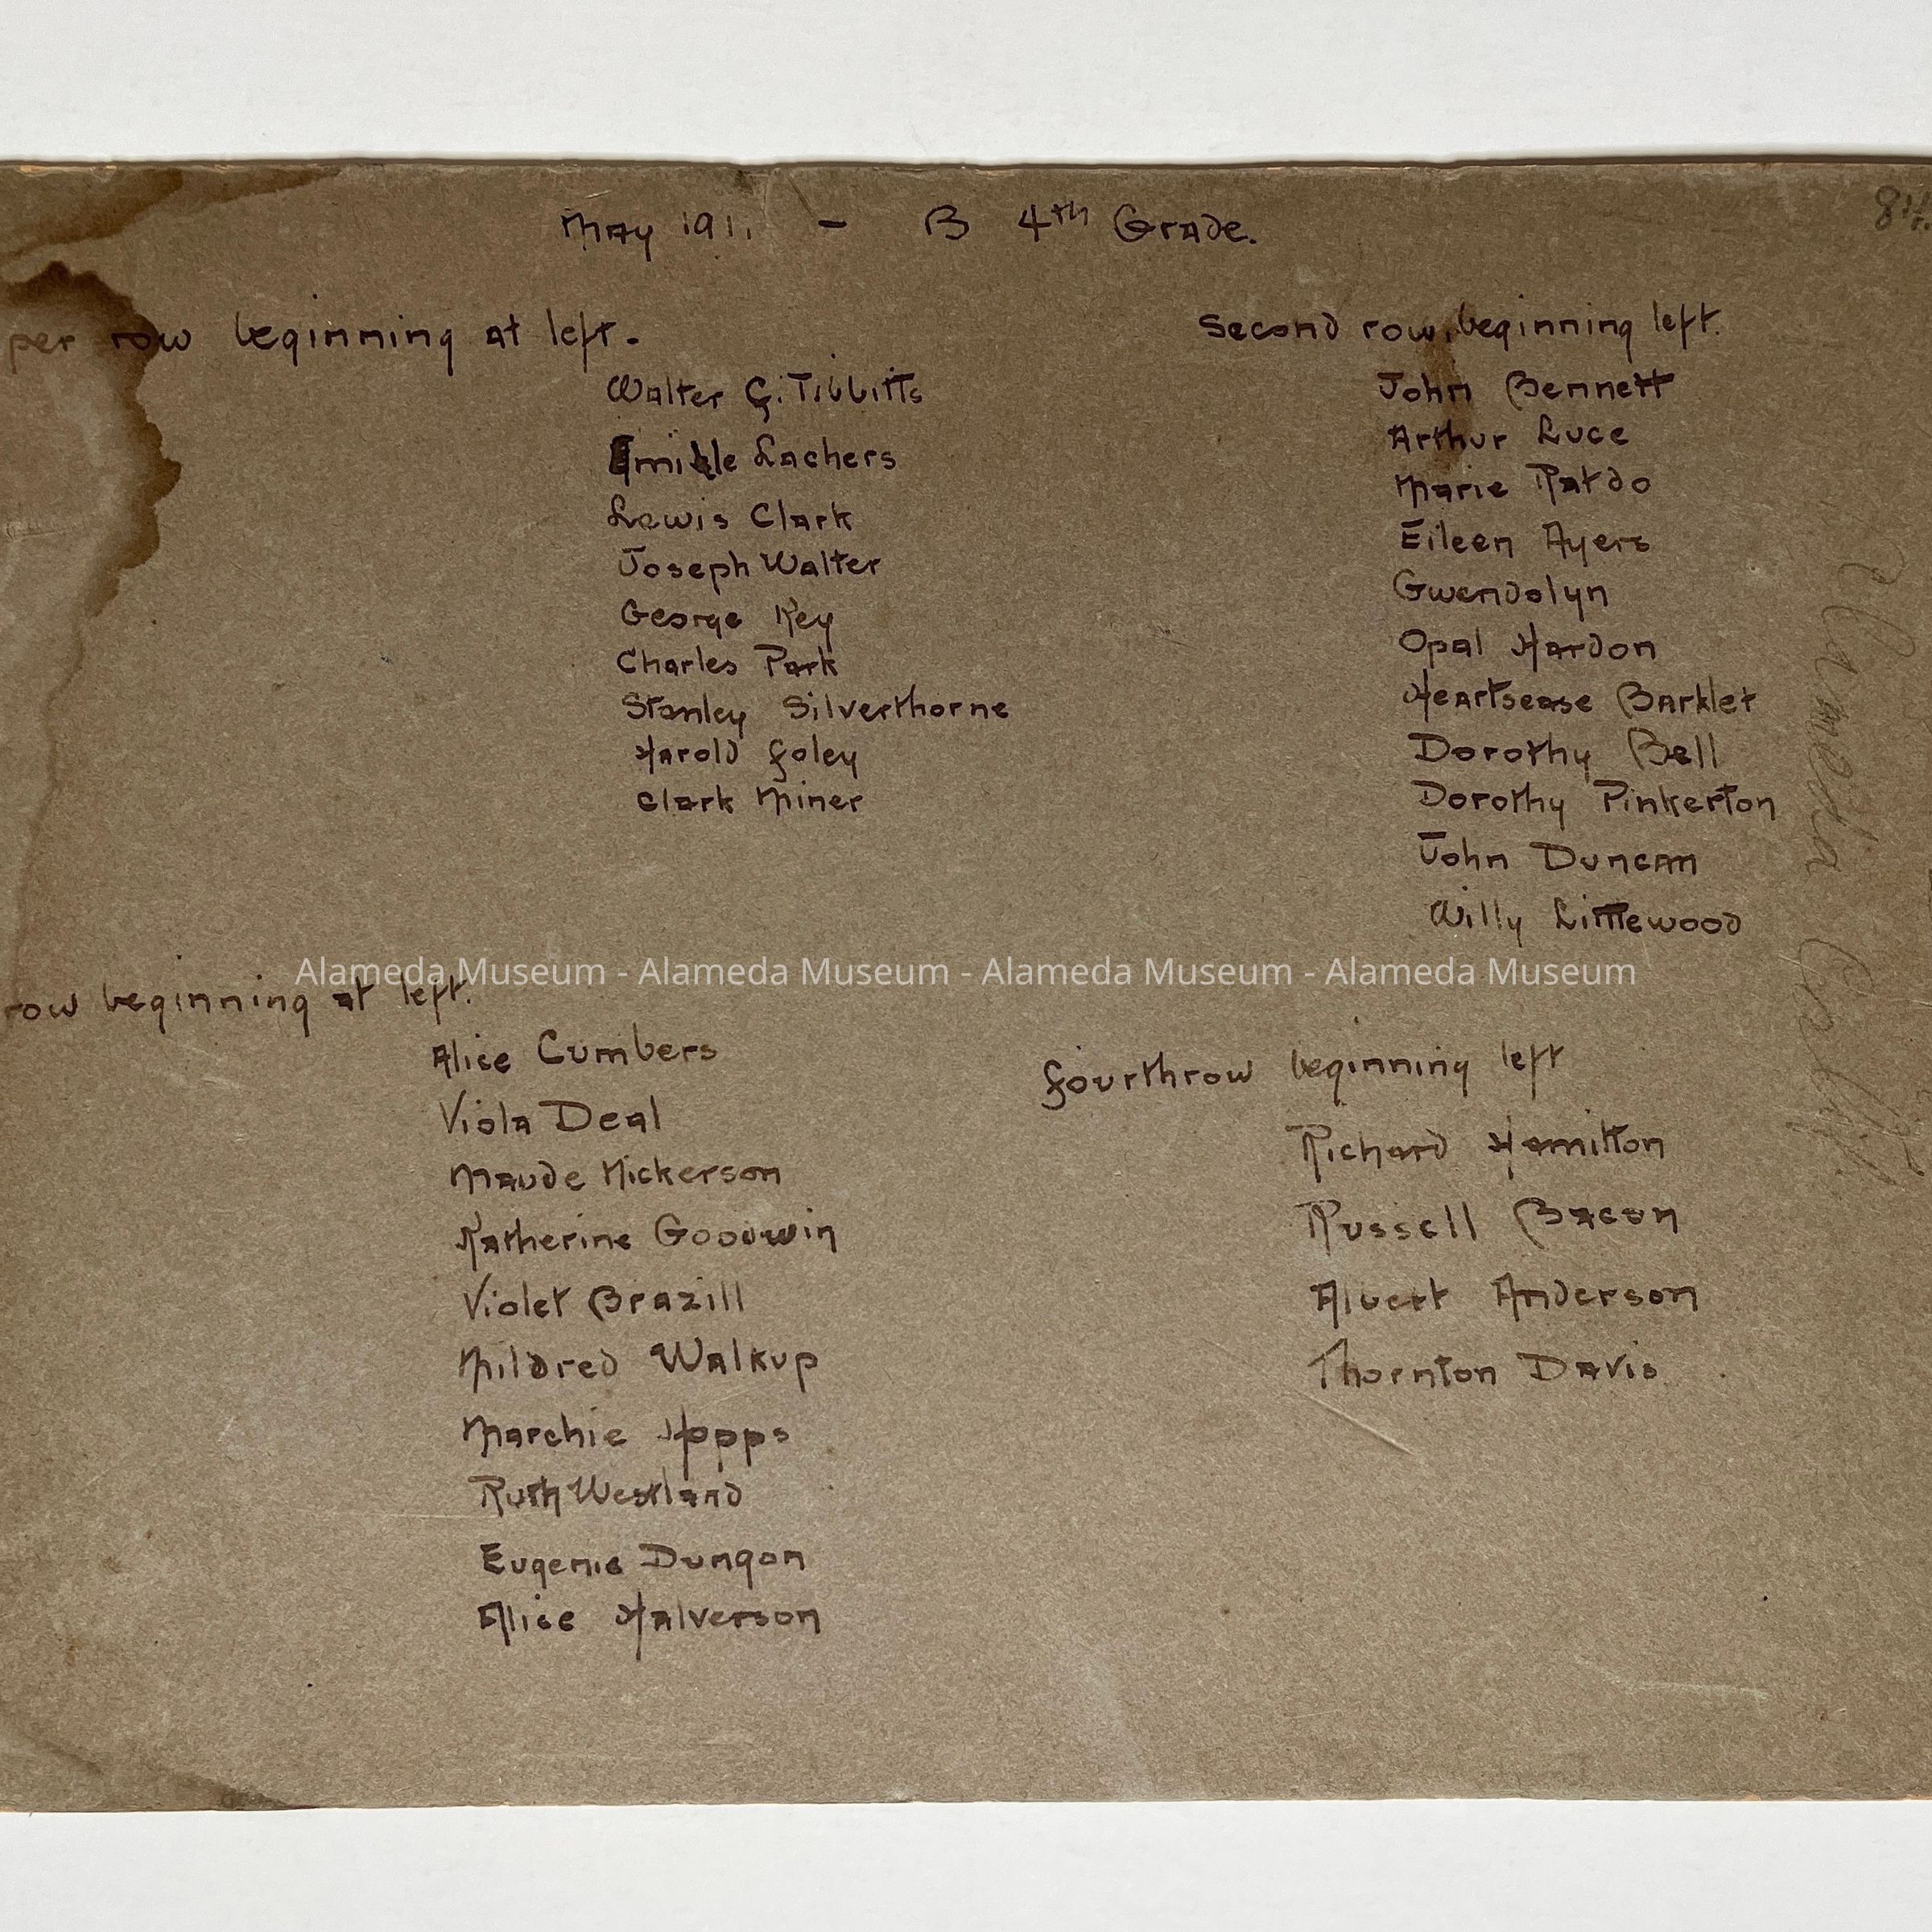 May 1911 - B 4th Grade.
per row beginning at left.
Walter G. Tibbitts
Emile Lachers
Lewis Clark
Joseph Walter
George Key
Charles Park
Stanley Silverthorne
Harold Foley
Clark Miner
Second row beginning left.
John Bennett
Arthur Luce
Marie Ratdo
Eileen Ayers
Gwendolyn
Opal Hardon
Heartsease Barklet
Dorothy Bell
Dorothy Pinkerton
John Duncan
Willy Littlewood
Alameda Museum - Alameda Museum - Alameda Museum - Alameda Museum
row beginning at left.
Alice Cumbers
Viola Deal
Maude Nickerson
Katherine Goodwin
Violet Brazill
Mildred Walkup
Marchie Hopps
Ruth Westland
Eugenie Dungon
Alice Halverson
fourth row beginning left
Richard Hamilton
Russell Bacon
Albert Anderson
Thornton Davis
Alameda Calif.